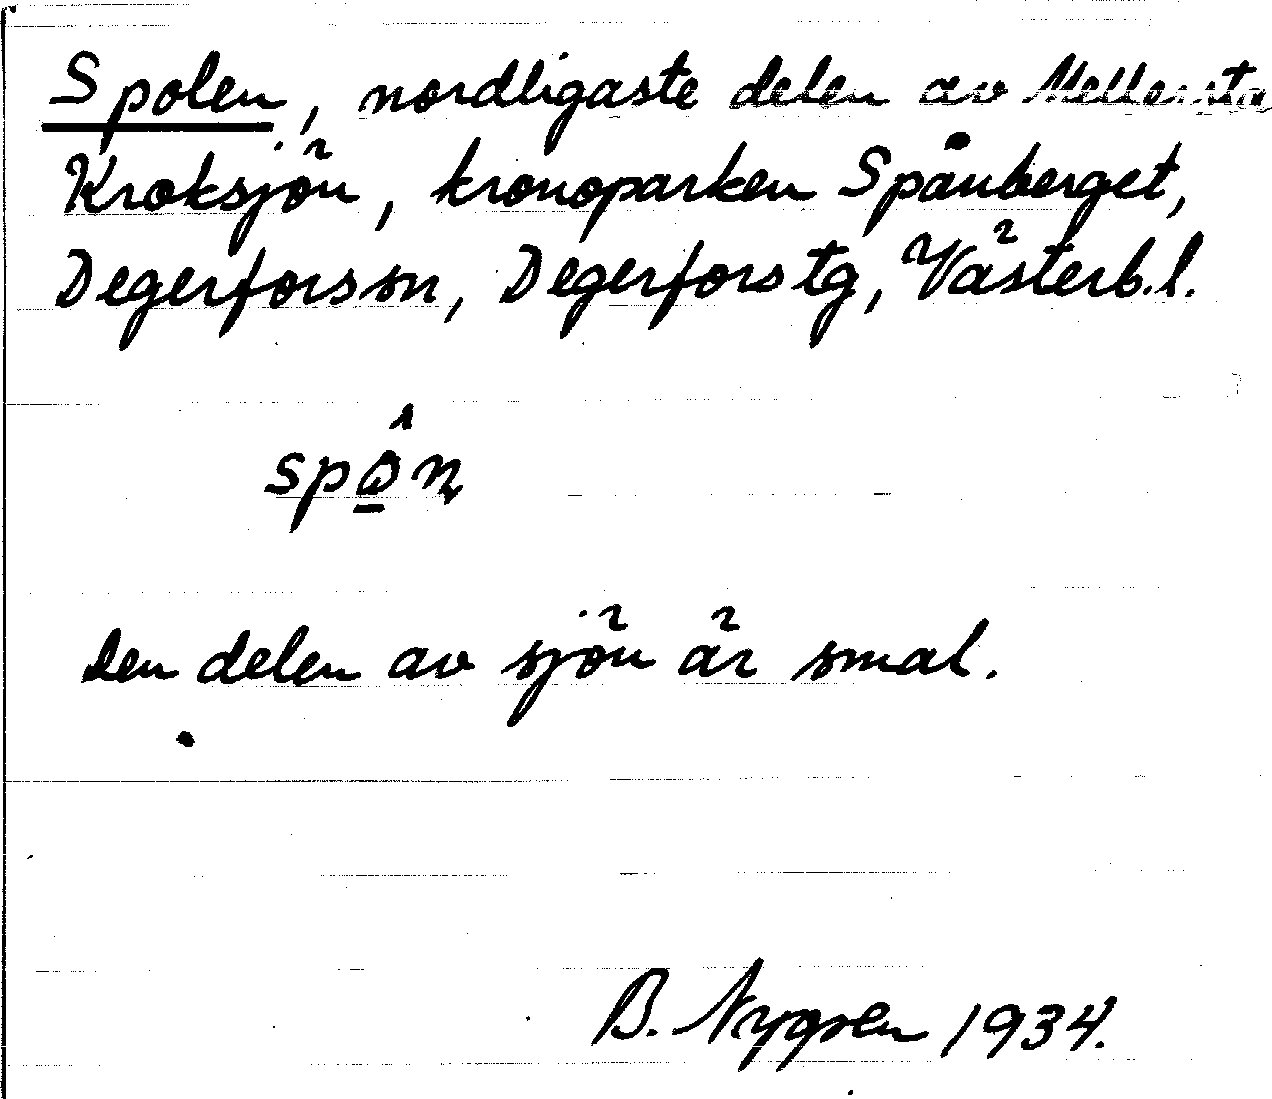 Spolen, nordligaste delen av Mellersta
Kroksjön, kronoparken Spånberget,
Degerforssn, Degerfors tg, Västerb.l.
Den delen av sjön är smal.
B. Nygren 1934.